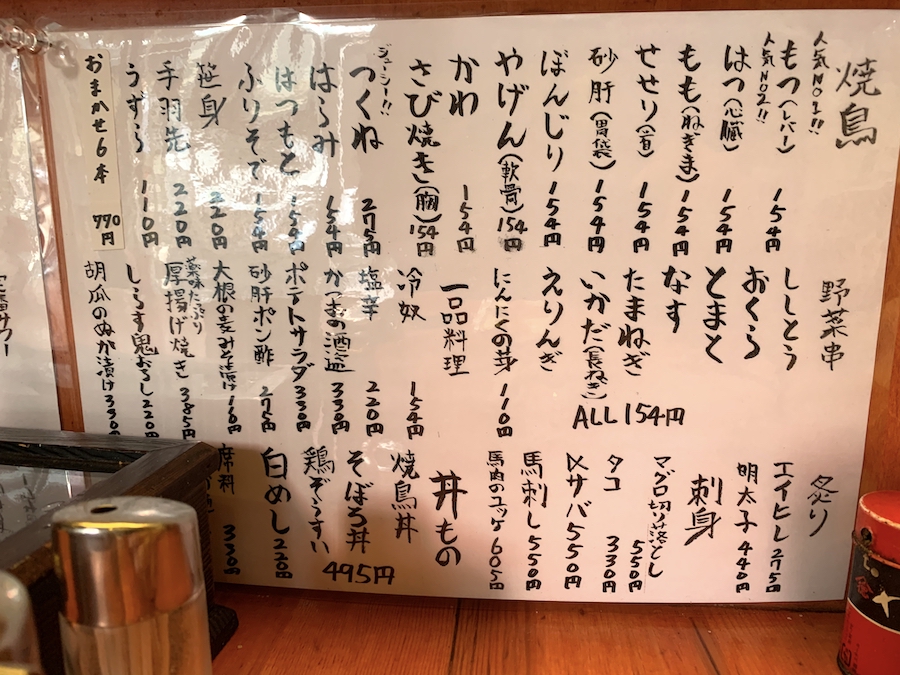 焼鳥
人気NO1!!
もつ(レバー) 154円
人気NO2!!
はつ(心臓) 154円
もも(ねぎま) 154円
せせり(首) 154円
砂肝(胃袋) 154円
ぼんじり 154円
やげん(軟骨) 154円
かわ 154円
さび焼き(胸) 154円
ジューシー!!
つくね 275円
はらみ 154円
はつもと 154円
ふりそで 154円
笹身 220円
手羽先 220円
うずら 110円
おまかせ6本 770円
野菜串
ししとう
おくら
とまと
なす
たまねぎ
いかだ(長ねぎ)
えりんぎ
ALL 154円
にんにくの芽 110円
一品料理
冷奴 154円
塩辛 220円
かつおの酒盗 330円
ポテトサラダ 330円
砂肝ポン酢 275円
大根の麦みそ漬け 110円
薬味たっぷり
厚揚げ焼き 385円
しらす鬼おろし 220円
胡瓜のぬか漬け 330円
炙り
エイヒレ 275円
明太子 440円
刺身
マグロ切り落とし 550円
タコ 330円
〆サバ 550円
馬刺し 550円
馬肉のユッケ 605円
丼もの
焼鳥丼
そぼろ丼
鶏ぞうすい
495円
白めし 220円
席料 330円